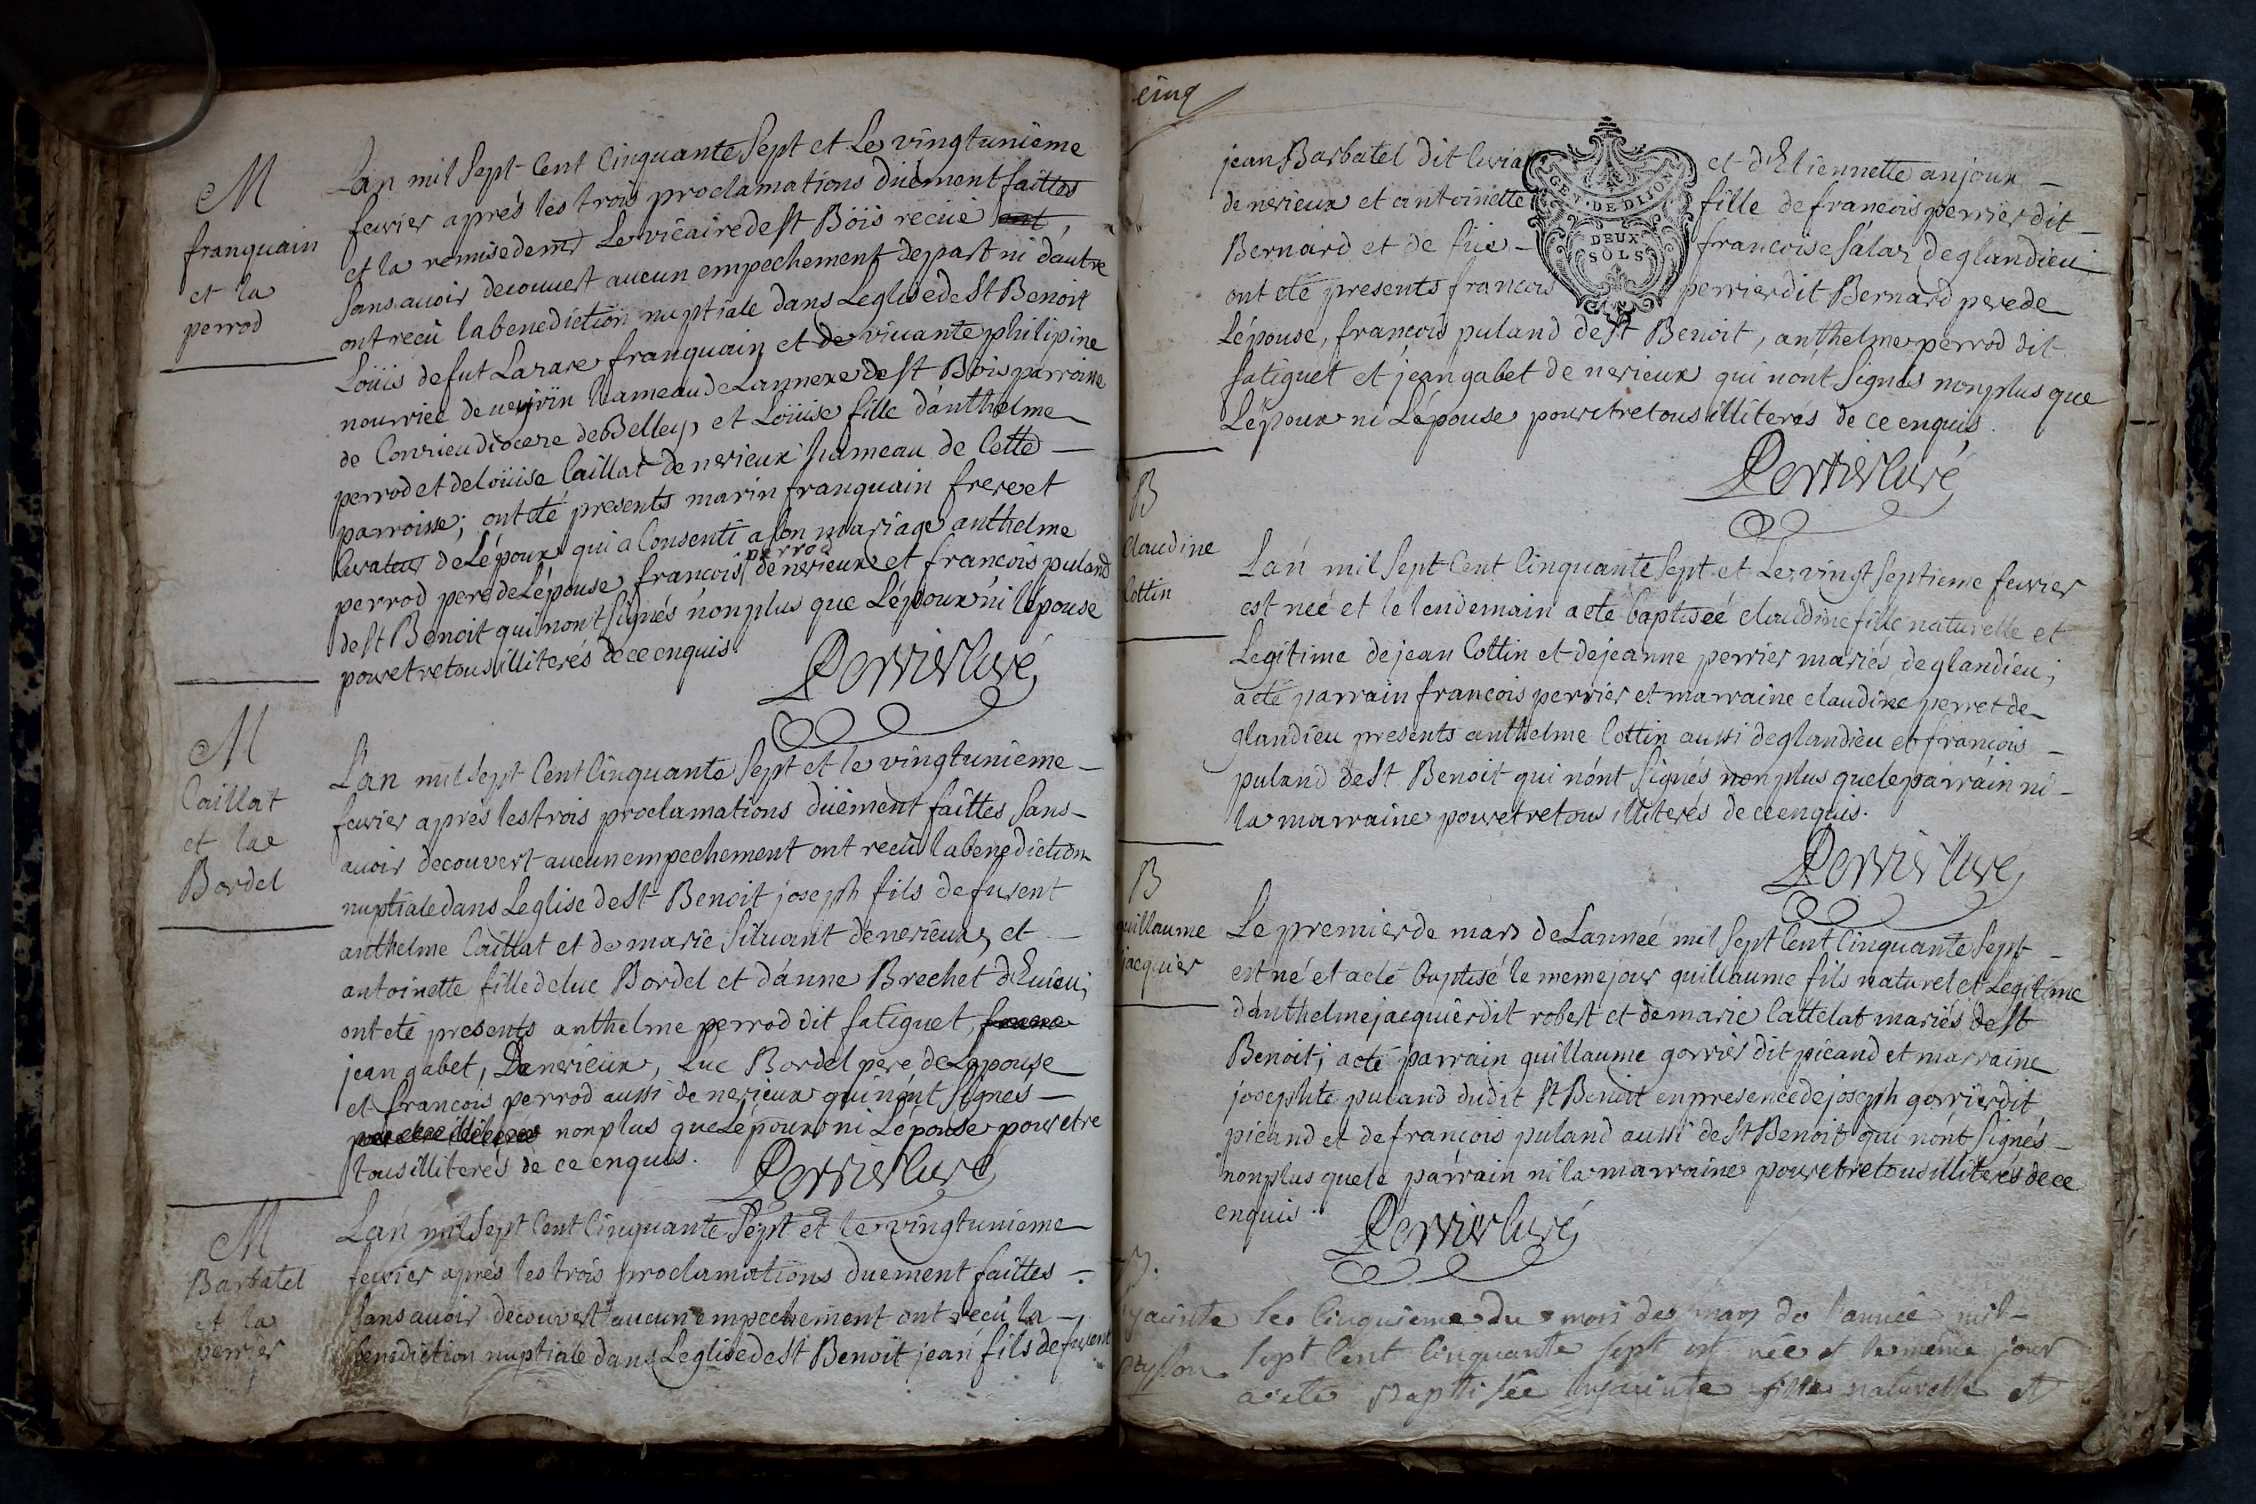 M
franquain
et la
perrod
Lan mil Sept Cent Cinquante Sept et Le vingtunieme
fevrier aprés les trois proclamations düement faittes
et la remise de mr Le vicaire de St Böis recüe
Sans avoir decouvert aucun empechement de part ni d'autre
ont recû la benediction nuptiale dans Leglise de St Benoit
Loüis de fut Lazare franquain et de vivante philipine
nourrice de veyrin hameau de Lannexe de St Bois parroisse
de Conzieu diocere de Belley, et Loüise fille d'anthelme
perrod et de Loüise Caillat de nerieux hameau de Cette
parroisse; ont été presents marin franquain frere et
Curateur de Lépoux qui a Consenti a son mariage anthelme
perrod pere de Lépouse, francois perrod de nerieux et francois puland
de St Benoit qui n'ont Signés non plus que Lépoux ni lépouse
pour etre tous illiterés de ce enquis.
Perrier Curé
M
Caillat
et la
Bordel
Lan mil Sept Cent Cinquante Sept et le vingtunieme
fevrier aprés les trois proclamations düement faittes Sans
avoir decouvert aucun empechement ont recû la benediction
nuptiale dans Leglise de St Benoit joseph fils de furent
anthelme Caillat et de marie Siluant de nerieux, et
antoinette fille de luc Bordel et d'anne Brechet d'Evieu;
ont eté presents anthelme perrod dit fatiguet,
jean gabet, De nerieux, Luc Bordel pere de Lepouse
et francois perrod aussi de nerieux qui n'ont Signés
non plus que Lépoux ni Lépouse pour etre
tous illiterés de ce enquis.
Perrier Curé
M
Barbatel
et la
perrier
Lan mil Sept Cent Cinquante Sept et le vingtunieme
fevrier aprés les trois proclamations duement faittes
Sans avoir decouvert aucun empechement ont recû la
benediction nuptiale dans Leglise de St Benoit jean fils de furent
cinq
jean Barbatel dit et d'Etiennette anjoux
de nerieux et antoinette fille de francois perrier dit
Bernard et de füe francoise Salaz de glandieu
ont eté presents francois perrier dit Bernard pere de
GEN. DE DIJON
DEUX
SOLS
Lépouse, francois puland de St Benoit, anthelme perrod dit
fatiguet et jean gabet de nerieux qui n'ont Signés non plus que
Lépoux ni Lépouse pour etre tous illiterés de ce enquis.
Perrier Curé
B
Claudine
Cottin
Lan mil Sept Cent Cinquante Sept et Le vingt Septieme fevrier
est neé et le lendemain a eté baptiseé claudine fille naturelle et
Legitime de jean Cottin et de jeanne perrier mariés de glandieu;
a eté parrain francois perrier et marraine claudine perret de
glandieu presents anthelme Cottin aussi de glandieu et francois
puland de St Benoit qui n'ont Signés non plus que le parrain ni
la marraine pour etre tous illiterés de ce enquis.
Perrier Curé
B
guillaume
jacquier
Le premier de mars de Lanneé mil Sept Cent Cinquante Sept
est né et a eté baptisé le meme jour guillaume fils naturel et Legitime
d'anthelme jacquier dit robert et de marie Cattelat mariés de St
Benoit; a eté parrain guillaume gorrier dit picand et marraine
josephte puland dudit St Benoit en presence de joseph gorrier dit
picand et de francois puland aussi de St Benoit qui n'ont Signés
non plus que le parrain ni la marraine pour etre tous illiterés de ce
enquis.
Perrier Curé
B.
Le Cinquieme du mois de mars de l'anneé mil
Sept Cent Cinquante Sept est née et le même jour
a été Baptisée hyacinte fille naturelle et